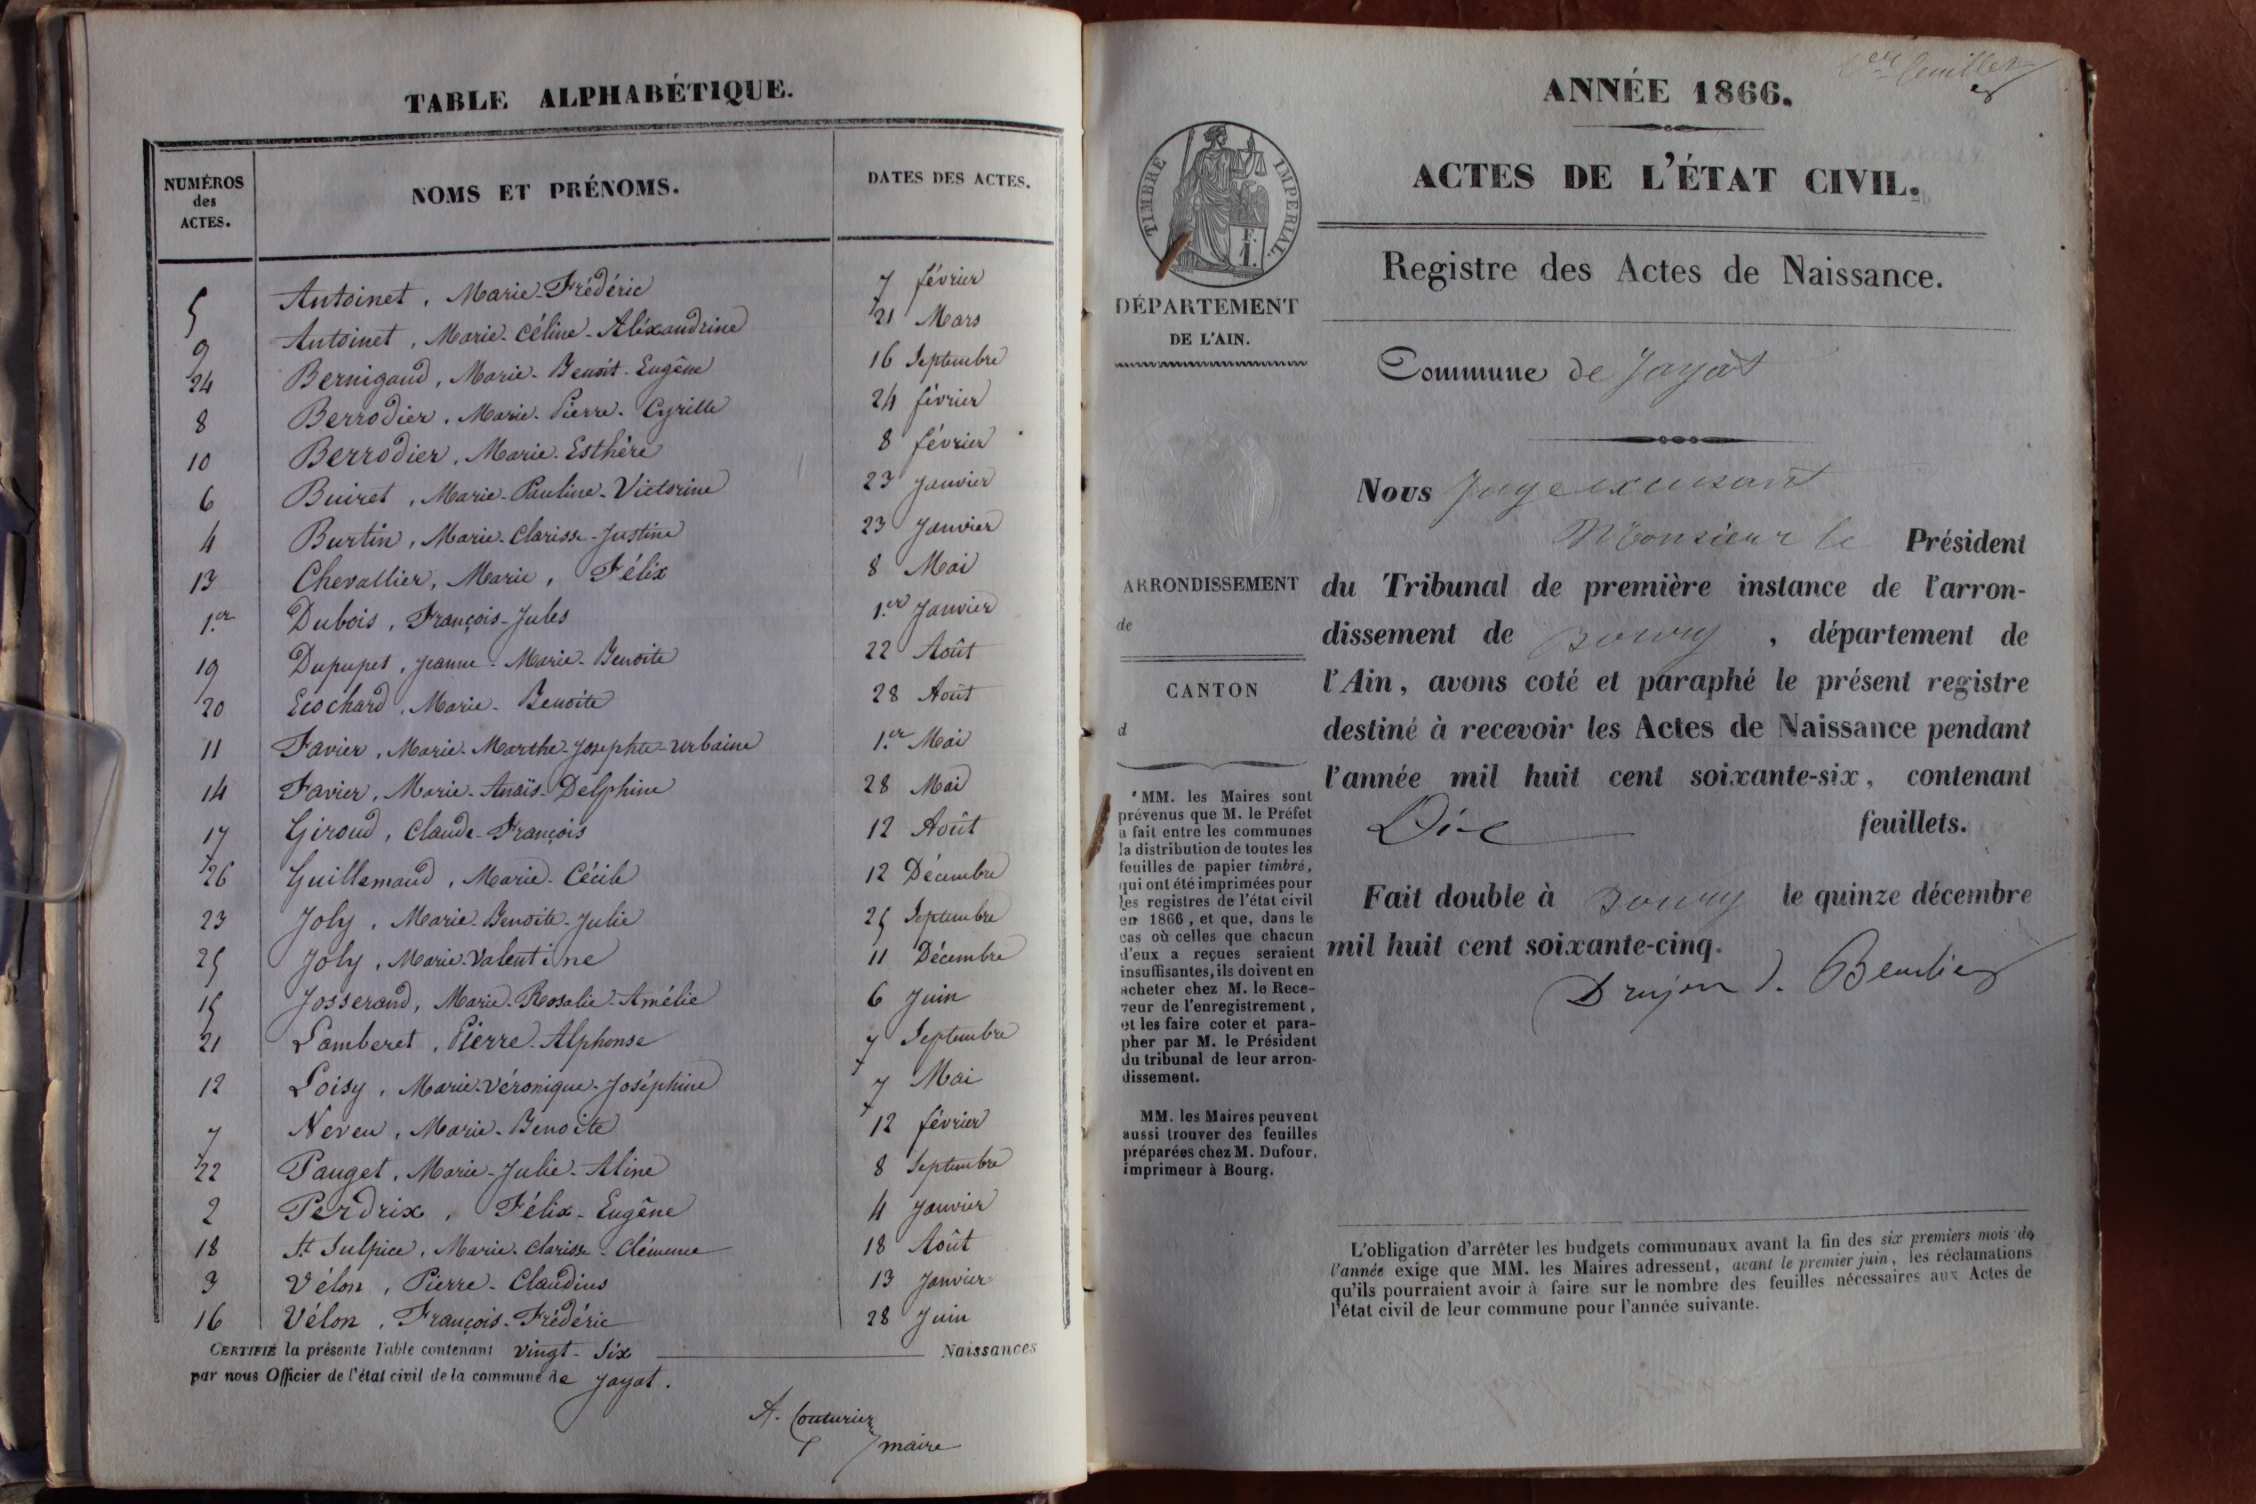 TABLE ALPHABÉTIQUE.
NUMÉROS des ACTES. NOMS ET PRÉNOMS. DATES DES ACTES.
5 Antoinet, Marie-Frédéric 7 février
9 Antoinet, Marie-Céline-Aléxandrine 21 Mars
24 Bernigaud, Marie-Benoit-Eugêne 16 Septembre
8 Berrodier, Marie-Pierre-Cyrille 24 février
10 Berrodier, Marie-Esthère 8 février
6 Buiret, Marie-Pauline-Victorine 23 Janvier
4 Burtin, Marie-Clarisse-Justine 23 Janvier
13 Chevallier, Marie, Félix 8 Mai
1.er Dubois, François-Jules 1.er Janvier
19 Dupupet, Jeanne-Marie-Benoite 22 Août
20 Ecochard, Marie-Benoite 28 Août
11 Favier, Marie-Marthe-Josephte-Urbaine 1.er Mai
14 Favier, Marie-Anaïs-Delphine 28 Mai
17 Giroud, Claude-François 12 Août
26 Guillemaud, Marie-Cécile 12 Décembre
23 Joly, Marie-Benoite-Julie 25 Septembre
25 Joly, Marie-Valentine 11 Décembre
15 Josserand, Marie-Rosalie-Amélie 6 Juin
21 Lamberet, Pierre-Alphonse 7 Septembre
12 Loisy, Marie-Véronique-Joséphine 7 Mai
7 Neveu, Marie-Benoite 12 février
22 Pauget, Marie-Julie-Aline 8 Septembre
2 Perdrix, Félix-Eugêne 4 Janvier
18 St Sulpice, Marie-Clarisse-Clémence 18 Août
3 Vélon, Pierre-Claudius 13 Janvier
16 Vélon, François-Frédéric 28 Juin
CERTIFIÉ la présente Table contenant vingt-Six Naissances
par nous Officier de l'état civil de la commune de Jayat.
A. Couturier
maire
1er feuillet
ANNÉE 1866.
ACTES DE L'ÉTAT CIVIL.
TIMBRE IMPERIAL.
F.
1.
Registre des Actes de Naissance.
DÉPARTEMENT
DE L'AIN.
Commune de Jayat
Nous Juge excusant
Monsieur le Président
du Tribunal de première instance de l'arron-
dissement de Bourg, département de
l'Ain, avons coté et paraphé le présent registre
destiné à recevoir les Actes de Naissance pendant
l'année mil huit cent soixante-six, contenant
Dix feuillets.
Fait double à Bourg le quinze décembre
mil huit cent soixante-cinq.
ARRONDISSEMENT
de
CANTON
d
MM. les Maires sont
prévenus que M. le Préfet
a fait entre les communes
la distribution de toutes les
feuilles de papier timbré,
qui ont été imprimées pour
les registres de l'état civil
en 1866, et que, dans le
cas où celles que chacun
d'eux a reçues seraient
insuffisantes, ils doivent en
acheter chez M. le Rece-
veur de l'enregistrement,
et les faire coter et para-
pher par M. le Président
du tribunal de leur arron-
dissement.
MM. les Maires peuvent
aussi trouver des feuilles
préparées chez M. Dufour,
imprimeur à Bourg.
L'obligation d'arrêter les budgets communaux avant la fin des six premiers mois de
l'année exige que MM. les Maires adressent, avant le premier juin, les réclamations
qu'ils pourraient avoir à faire sur le nombre des feuilles nécessaires aux Actes de
l'état civil de leur commune pour l'année suivante.